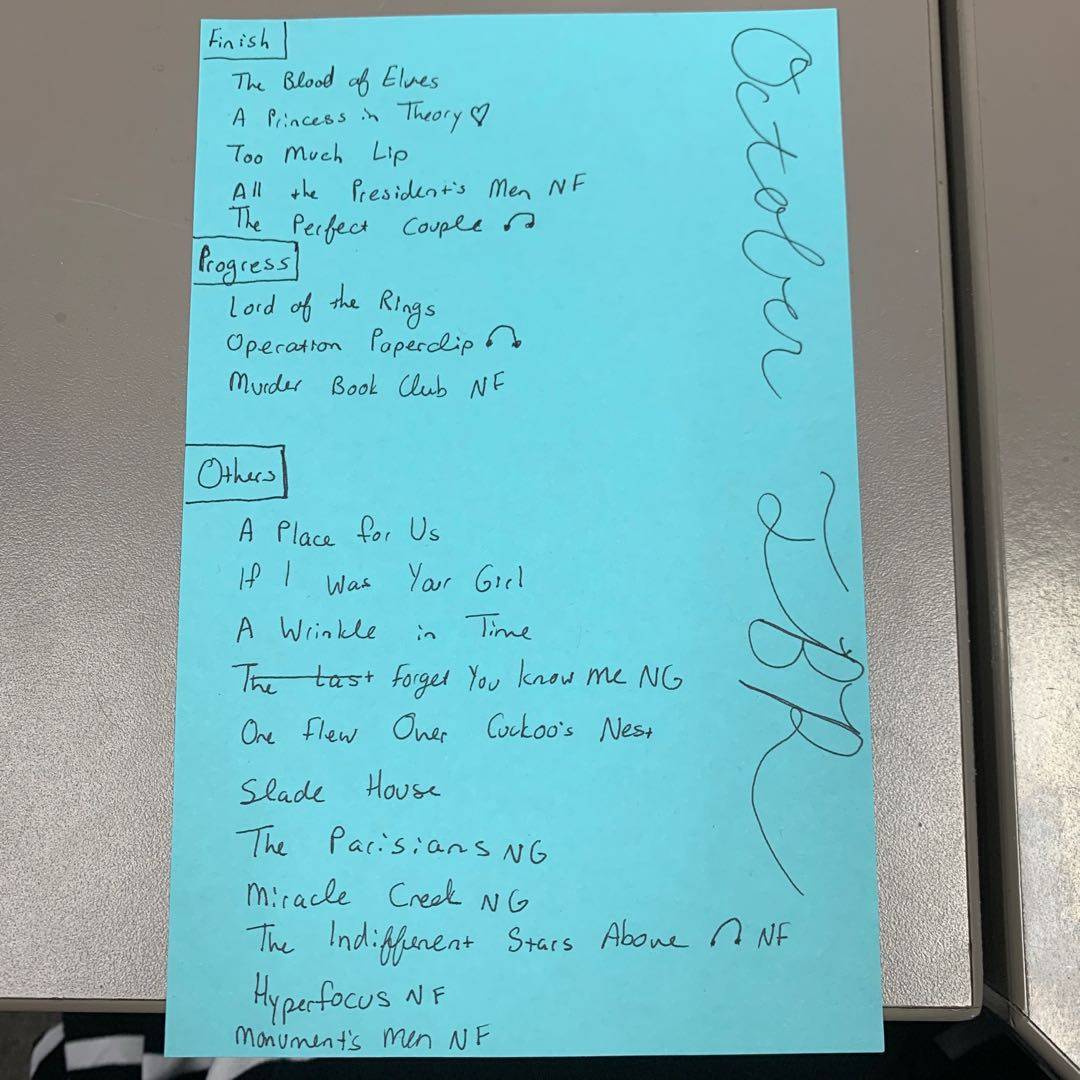 Finish
The Blood of Elves
A Princess in Theory ♡
Too Much Lip
All the President's Men NF
The Perfect Couple
Progress
Lord of the Rings
Operation Paperclip
Murder Book Club NF
Others
A Place for Us
If I Was Your Girl
A Wrinkle in Time
The Last Forget You Know Me NG
One Flew Over Cuckoo's Nest
Slade House
The Parisians NG
Miracle Creek NG
The Indifferent Stars Above NF
Hyperfocus NF
Monument's Men NF
October TBR